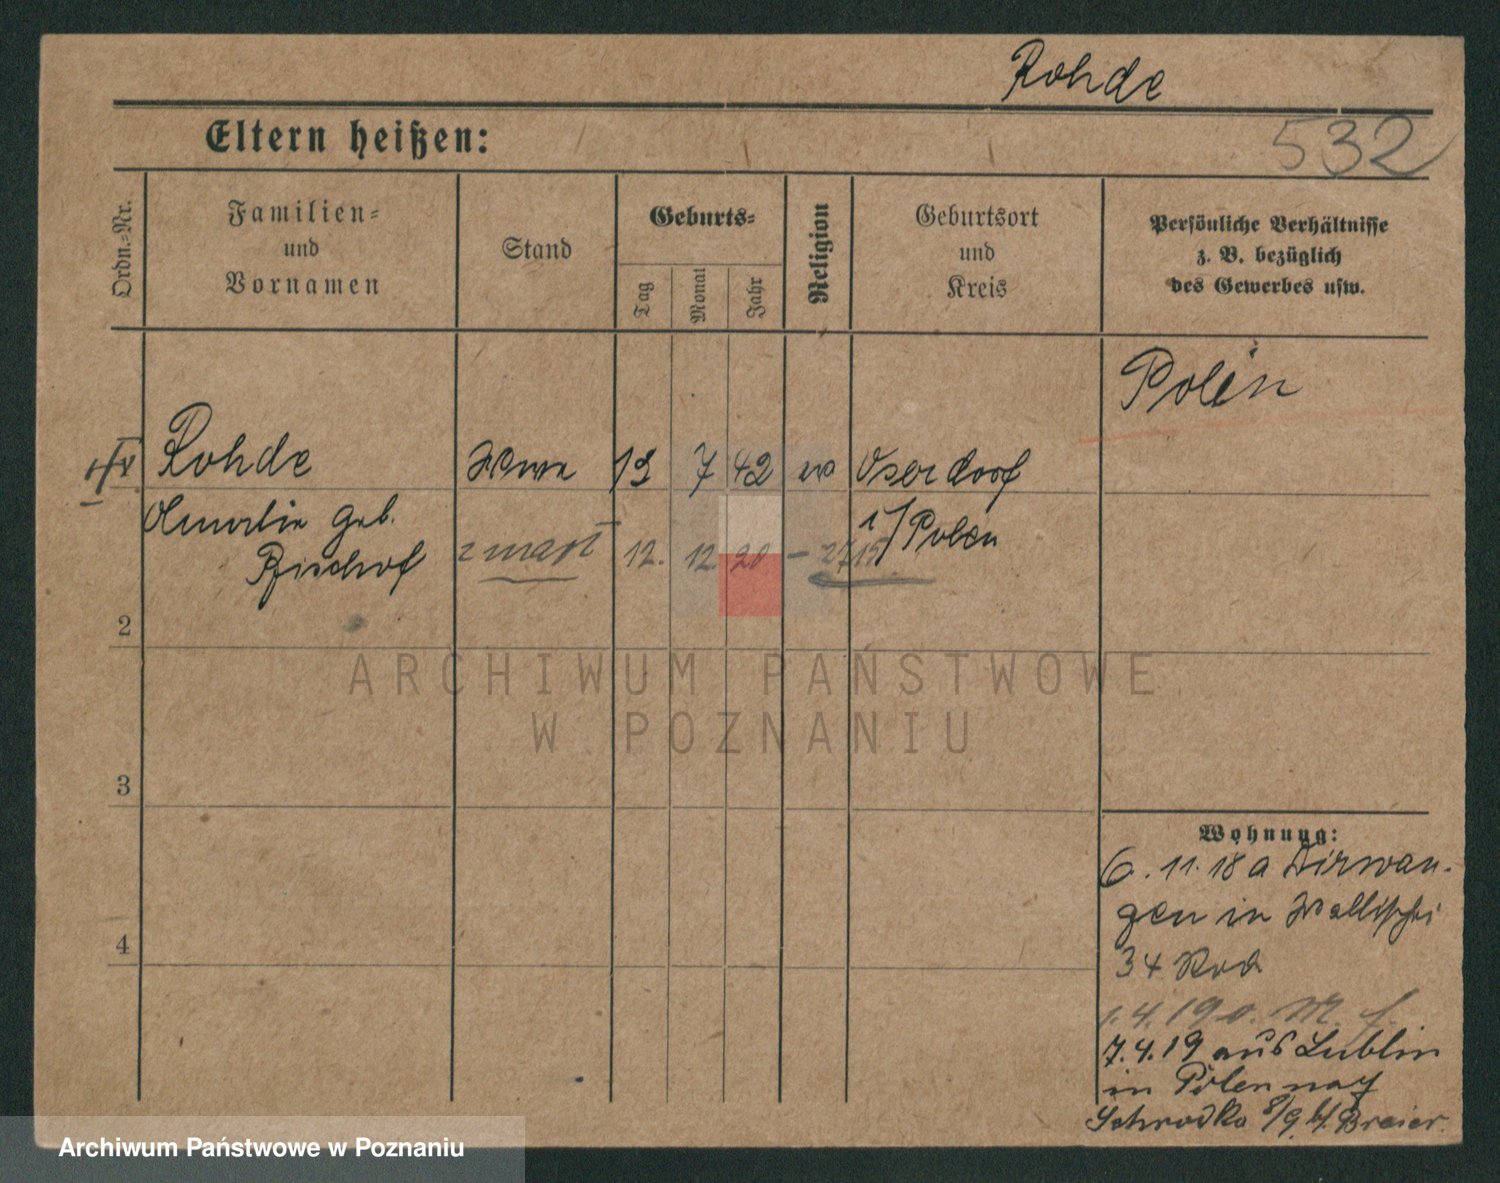 Rohde
Eltern heißen:
532
Ordn.-Nr.
Familien-
und
Vornamen
Stand
Geburts-
Tag
Monat
Jahr
Religion
Geburtsort
und
Kreis
Persönliche Verhältnisse
z. B. bezüglich
des Gewerbes usw.
Polen
Rohde
7 42
Oserdorf
geb.
Bischof
i/Polen
zmarł 12. 12 20 - 2715
2
3
4
ARCHIWUM PAŃSTWOWE
W POZNANIU
Wohnung:
6. 11. 18 a Dirwan-
gen in Wallischei
34
1.4.19
7.4.19 aus Lublin
in Polen nach
Schrodka 8/9 b/ Breier.
Archiwum Państwowe w Poznaniu